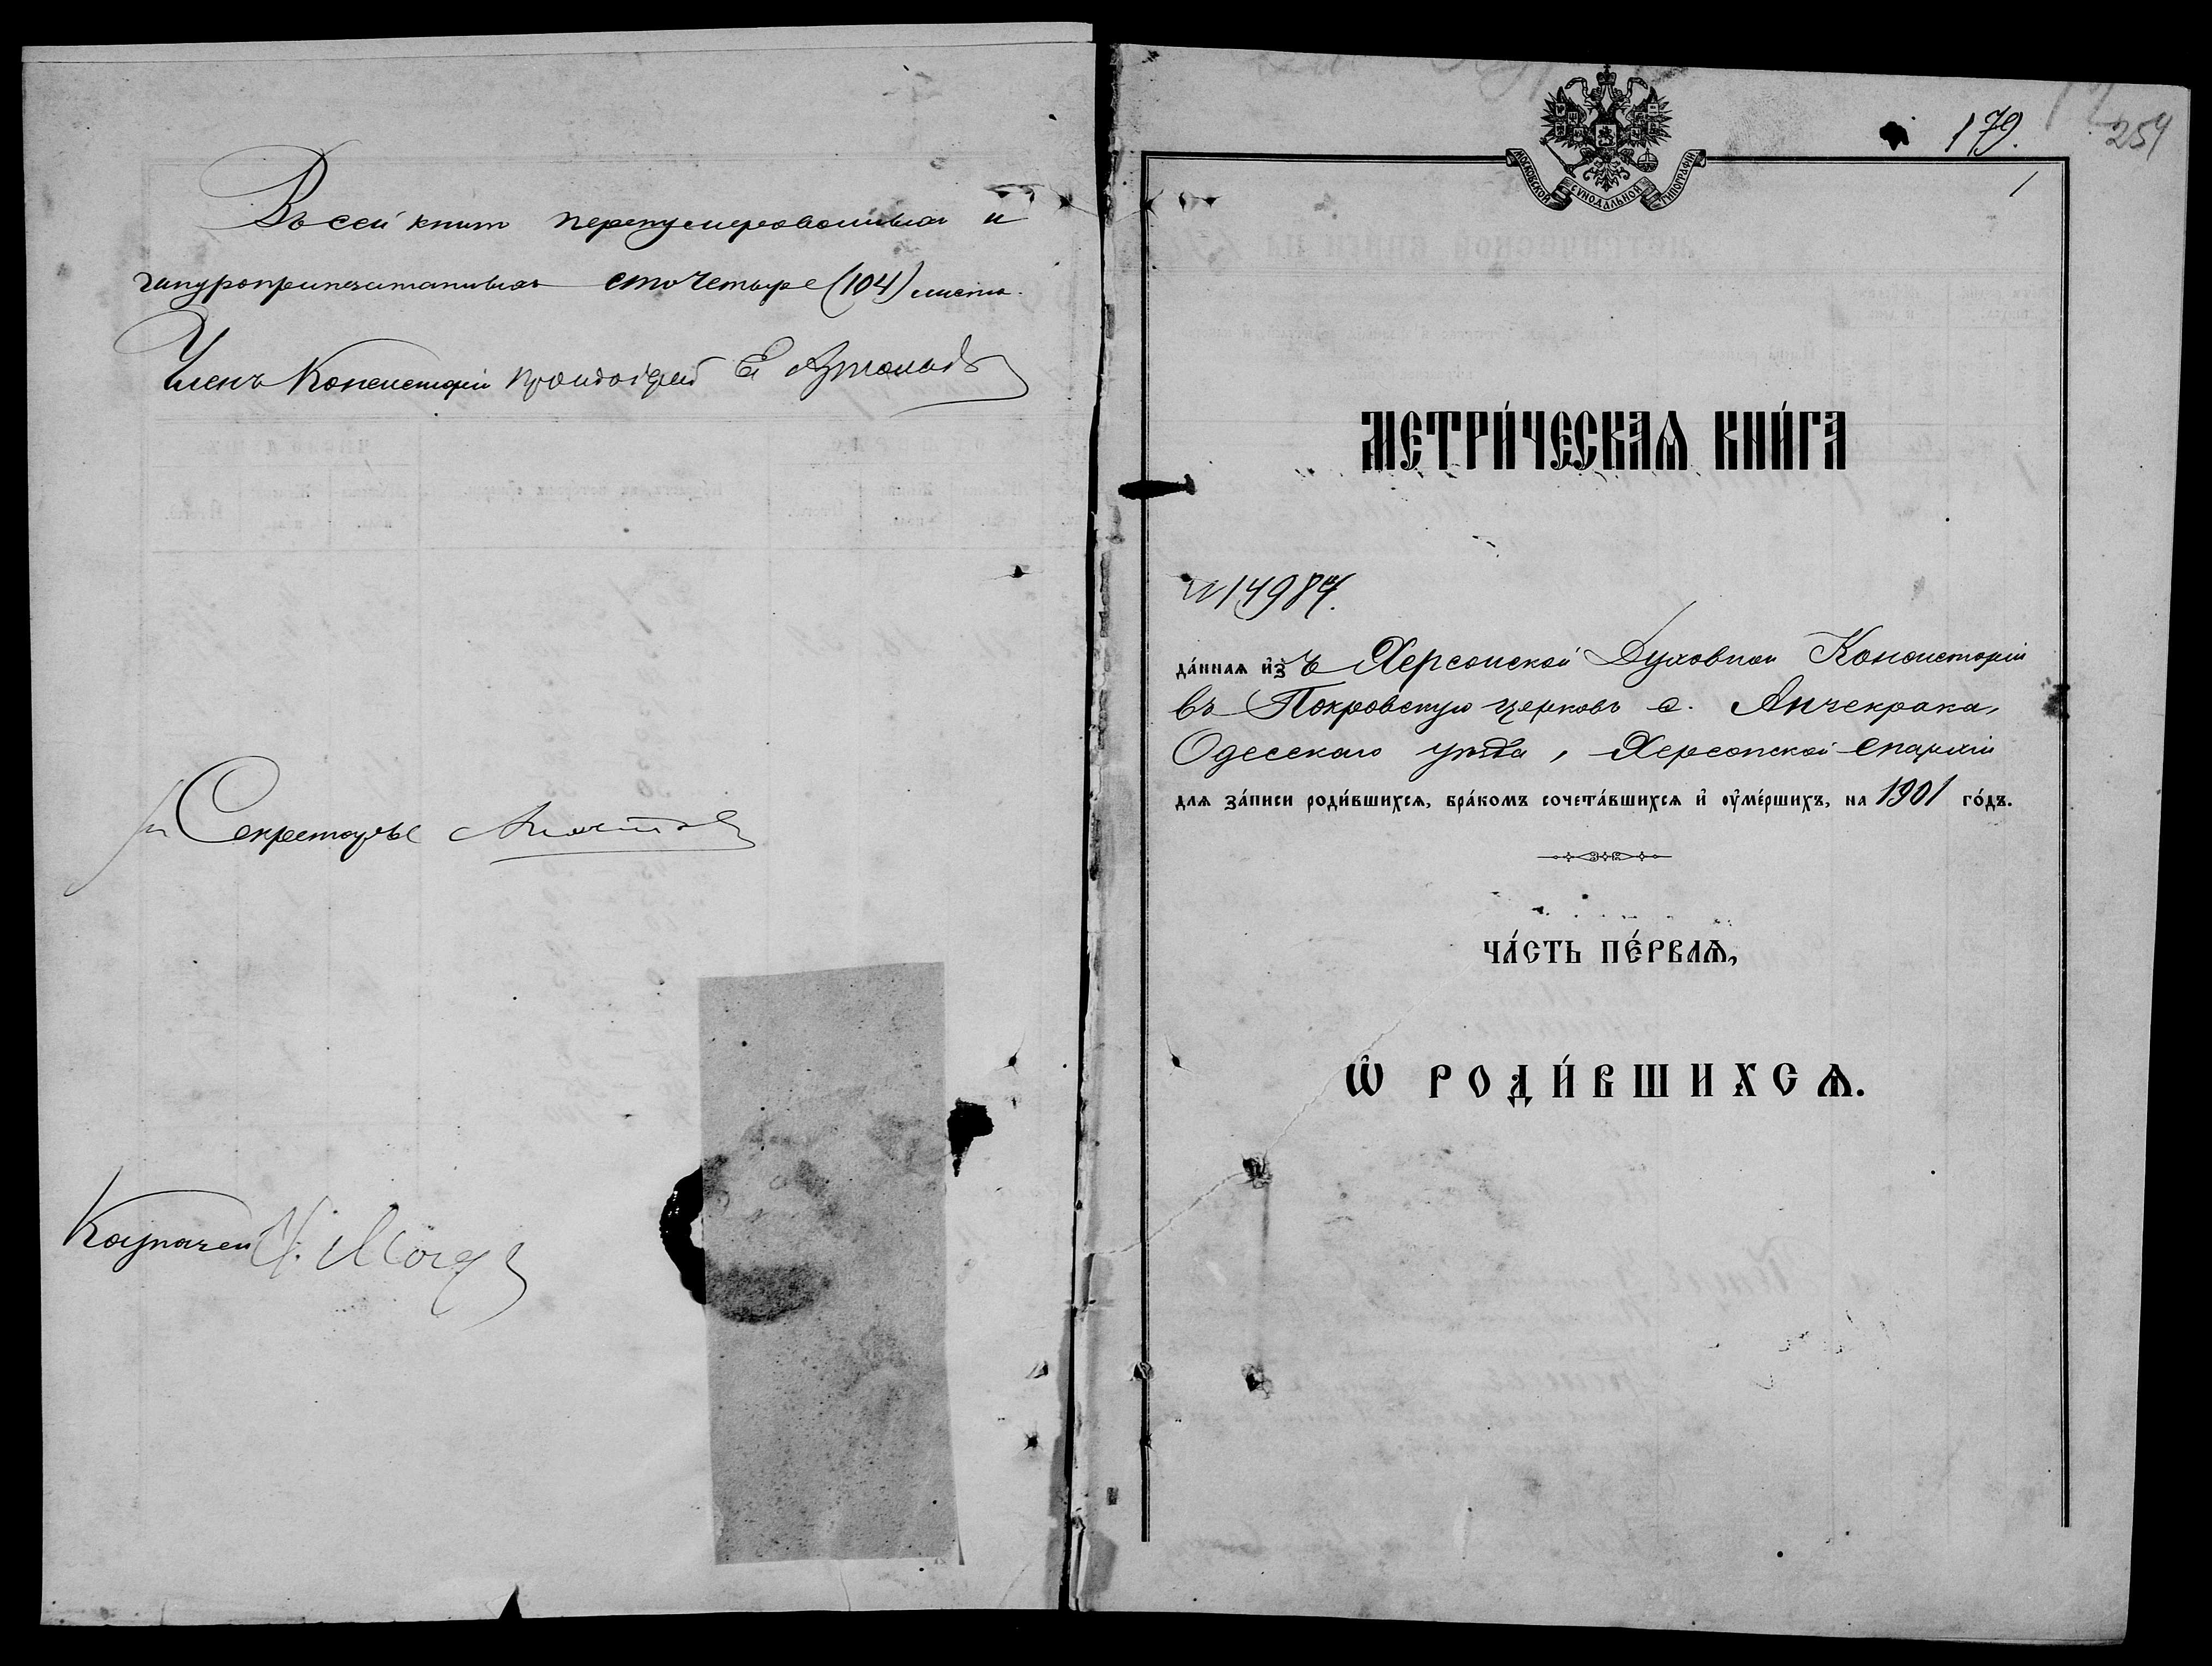 Въ сей книгѣ перенумерованныхъ и
шнуроприпечатанныхъ сто четыре (104) листа.
Членъ Консисторіи Протоіерей Е.
Секретарь
Казначей И.
МОСКОВСКОЙ СѴНОДАЛЬНОЙ ТИПОГРАФІИ
179.
254
1
МЕТРИ́ЧЕСКАѦ КНИ́ГА
№ 14984.
да́нная и҆зъ Херсонской Духовной Консисторіи
въ Покровскую церковь с. Анчекрака,
Одесскаго уѣзда, Херсонской епархіи
для за́писи роди́вшихся, бра́комъ сочета́вшихся и҆ оу҆ме́ршихъ, на 1901 го́дъ.
ЧА́СТЬ ПЕ́РВАѦ,
Ѡ҆ РОДИ́ВШИХСѦ.